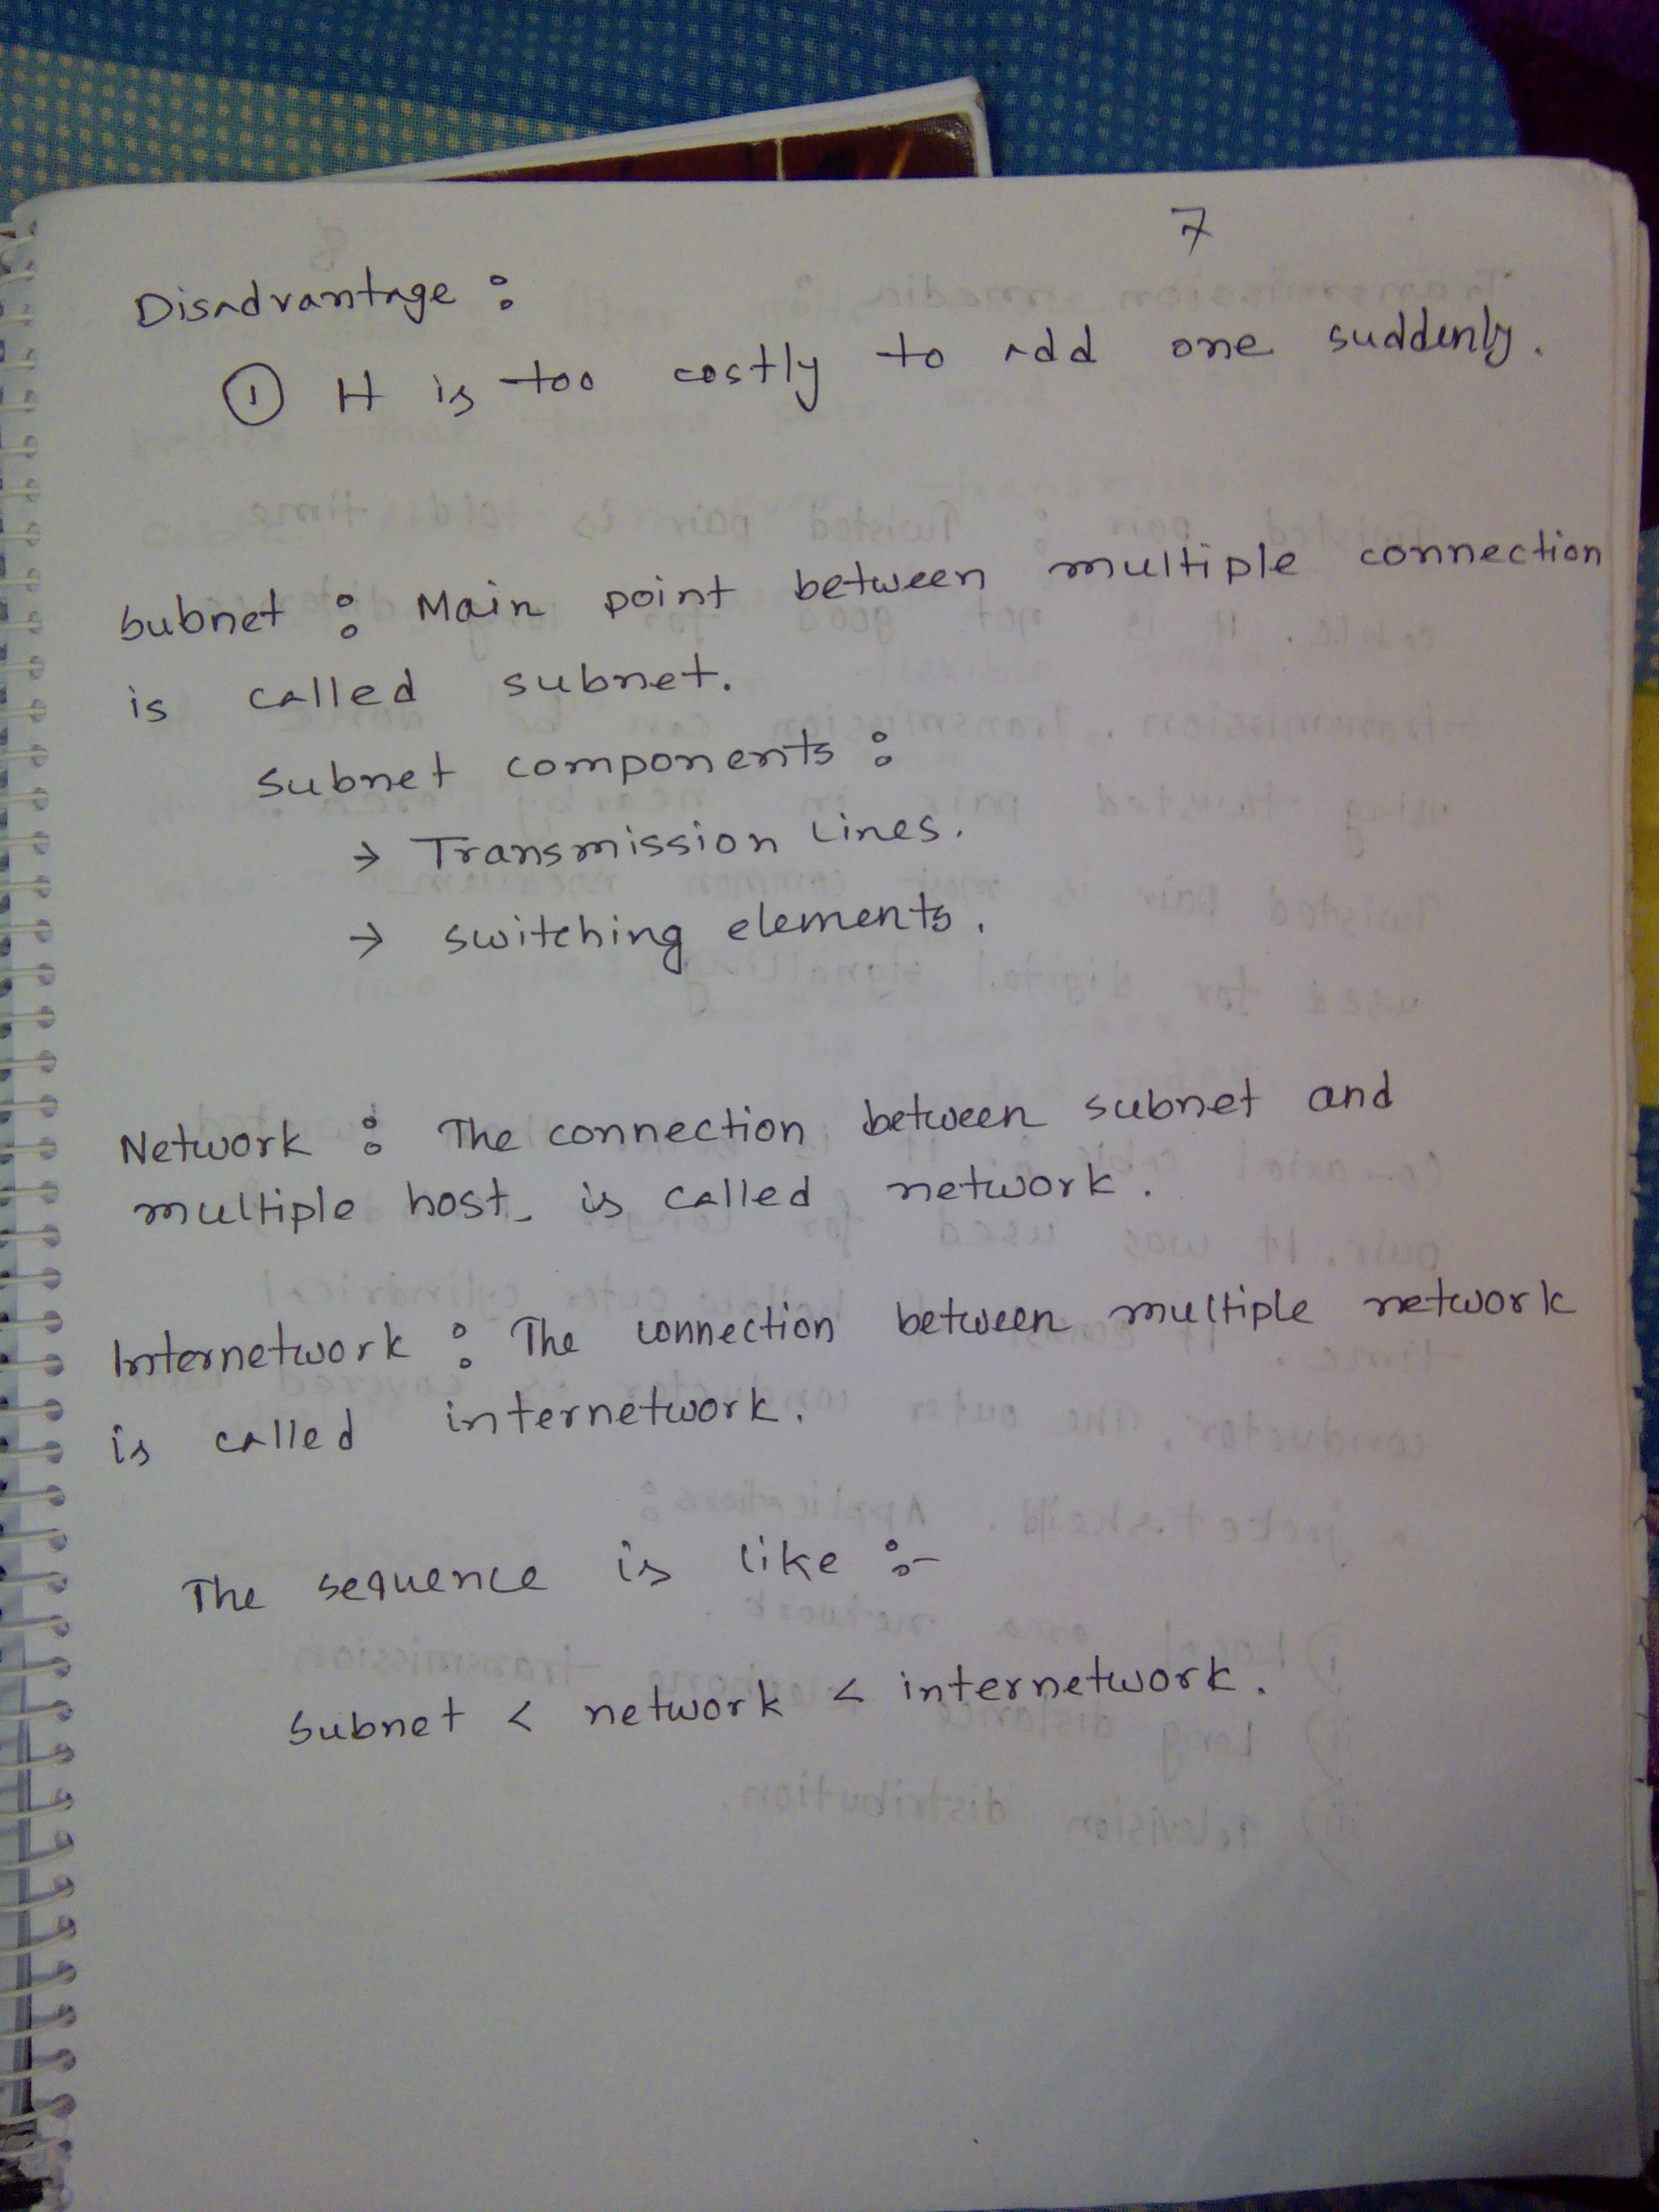 7
Disadvantage :
① It is too costly to add one suddenly.
Subnet : Main point between multiple connection
is called subnet.
Subnet components :
→ Transmission Lines.
→ switching elements.
Network : The connection between subnet and
multiple host is called network.
Internetwork : The connection between multiple network
is called internetwork.
The sequence is like :-
Subnet < network < internetwork.